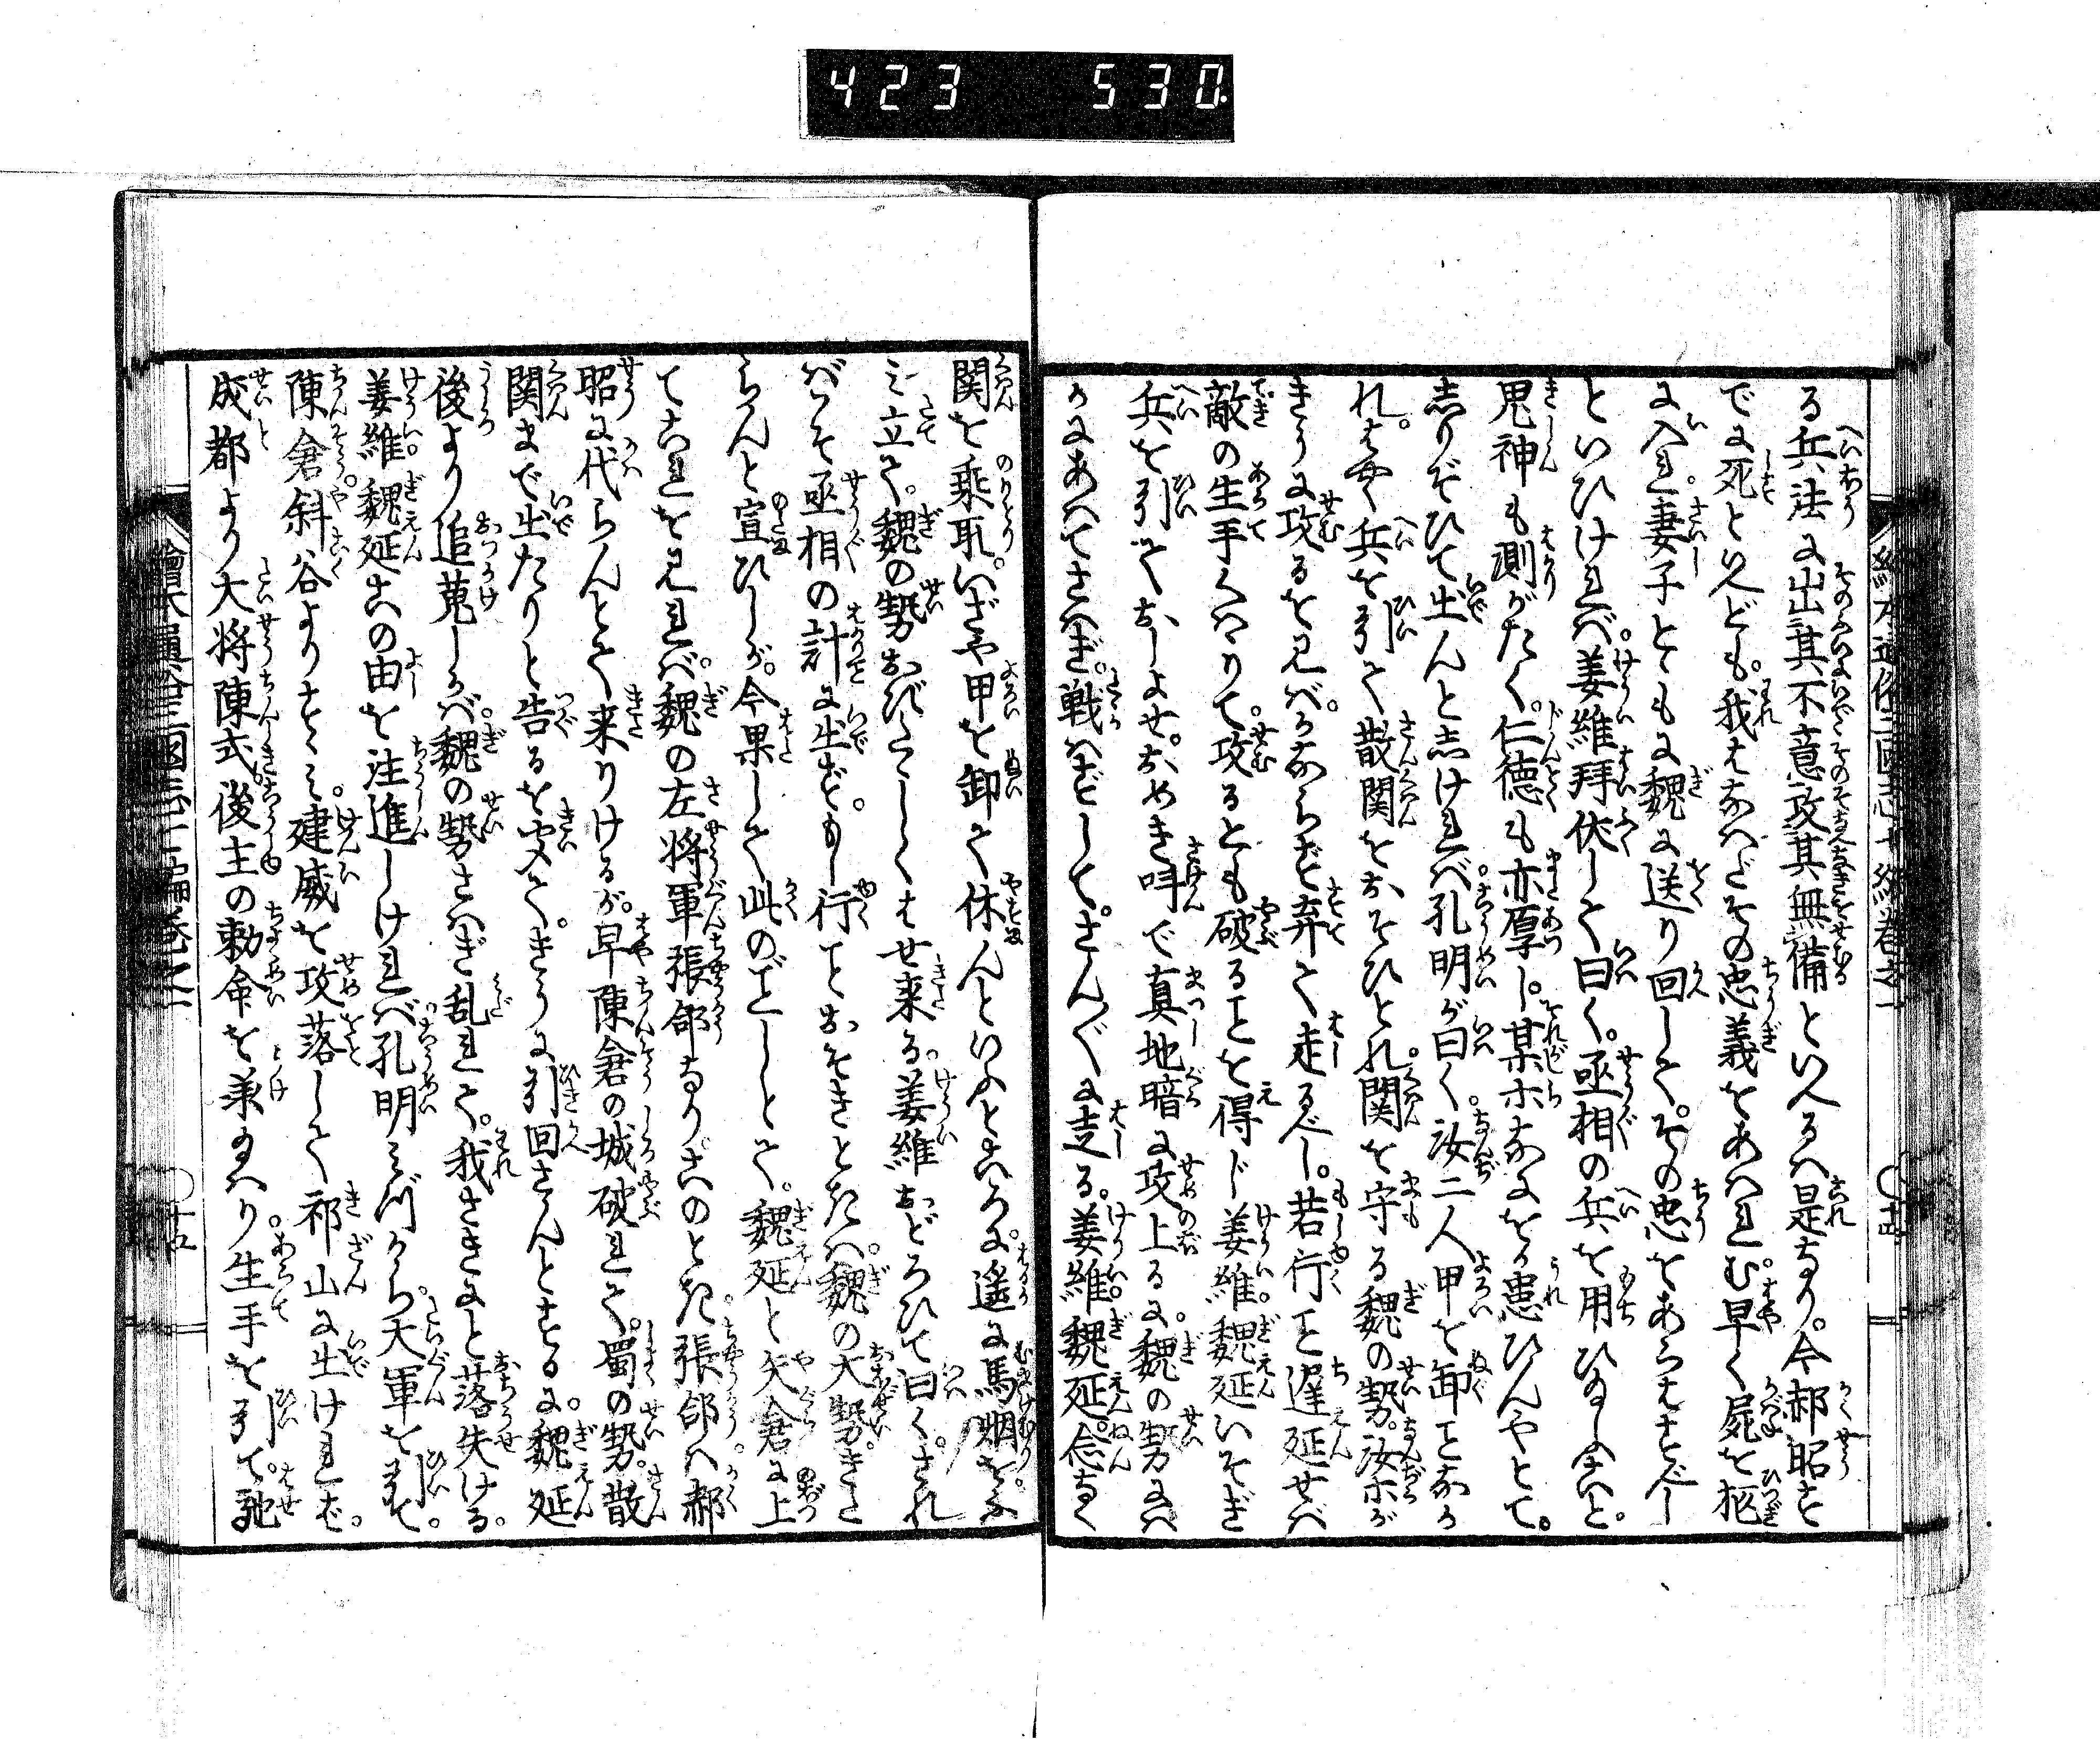 423 530
る兵法に出其不意攻其無備といへるハ是なり。今郝昭す
でに死といへども。我はなハだその忠義をあハれむ。早く屍を柩
に入れ。妻子とともに魏に送り回して。その忠をあらハすべし
といひけれバ。姜維拝伏して曰く。丞相の兵を用ひ給ふこと。
鬼神も測がたく。仁徳も亦厚し。某ホなにをか患ひんやとて。
志りぞひて出んと志けれバ。孔明が曰く。汝二人甲を卸ことなか
れ。はやく兵を引て散関をおそひとれ。関を守る魏の勢。汝ホが
きうに攻るを見バ。かならず弃て走るべし。若行こと遅延せバ
敵の生手くハゝりて。攻るとも破ることを得じ姜維。魏延いそぎ
兵を引ておしよせ。おめき叫で真地暗に攻上るに。魏の勢にハ
かにあハてさハぎ。戦ハずして。さんぐに走る。姜維。魏延。念なく
関を乗取。いざや甲を卸て休んといふところに。遥に馬烟をふ
ミ立て。魏の勢おびたゝしくはせ来る。姜維おどろひて曰く。され
ばこそ丞相の計に出ず。もし行ことおそきときハ。魏の大勢きた
らんと宣ひしが。今果して此のごとしとて。魏延と矢倉に上
てこれを見れバ。魏の左将軍張郃なり。このとき。張郃ハ郝
昭に代らんとて来りけるが。早陳倉の城破れて。蜀の勢。散
関まで出たりと告るを聞て。きうに引回さんとするに。魏延
後より追蒐しかバ。魏の勢さハぎ乱れて。我さきにと落失ける。
姜維。魏延この由を注進しけれバ。孔明ミづから大軍を引て。
陳倉斜谷よりすゝミ。建威を攻落して祁山に出けれバ。
成都より大将陳式後主の勅命を承ハり。生手を引て。馳
繪本通俗三國志七編巻之一
十五